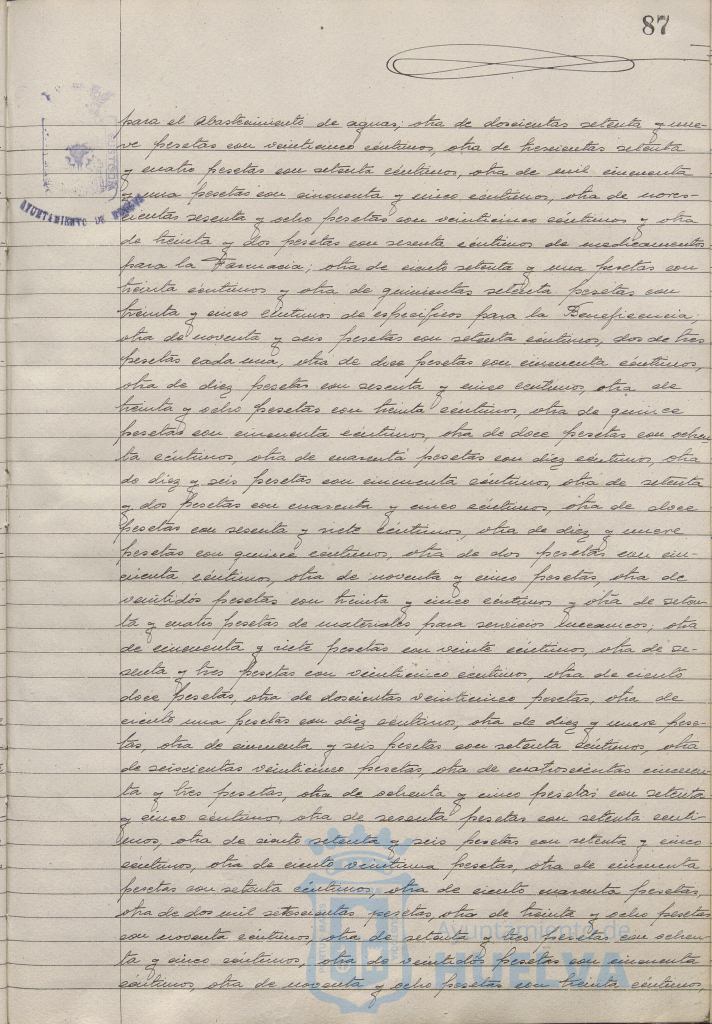 87
para el abastecimiento de aguas; otra de doscientas setenta y nue-
ve pesetas con veinticinco céntimos, otra de trescientas setenta
y cuatro pesetas con setenta céntimos, otra de mil cincuenta
y una pesetas con cincuenta y cinco céntimos, otra de nove-
cientas sesenta y ocho pesetas con veinticinco céntimos y otra
de treinta y dos pesetas con sesenta céntimos de medicamentos
para la Farmacia; otra de ciento setenta y una pesetas con
treinta céntimos y otra de quinientas setenta pesetas con
treinta y cinco céntimos de específicos para la Beneficencia;
otra de noventa y seis pesetas con setenta céntimos, dos de tres
pesetas cada una, otra de doce pesetas con cincuenta céntimos,
otra de diez pesetas con sesenta y cinco centimos, otra de
treinta y ocho pesetas con treinta céntimos, otra de quince
pesetas con cincuenta céntimos, otra de doce pesetas con ochen-
ta céntimos, otra de cuarenta pesetas con diez céntimos, otra
de diez y seis pesetas con cincuenta céntimos, otra de setenta
y dos pesetas con cuarenta y cinco céntimos, otra de doce
pesetas con sesenta y siete céntimos, otra de diez y nueve
pesetas con quince céntimos, otra de dos pesetas con cin-
cuenta céntimos, otra de noventa y cinco pesetas, otra de
veintidos pesetas con treinta y cinco céntimos y otra de seten-
ta y cuatro pesetas de materiales para servicios mecanicos; otra
de cincuenta y siete pesetas con veinte céntimos, otra de se-
senta y tres pesetas con veinticinco céntimos, otra de ciento
doce pesetas, otra de doscientas veinticinco pesetas, otra de
ciento una pesetas con diez céntimos, otra de diez y nueve pese-
tas, otra de cincuenta y seis pesetas con setenta céntimos, otra
de seiscientas veinticinco pesetas, otra de cuatrocientas cincuen-
ta y tres pesetas, otra de ochenta y cinco pesetas con setenta
y cinco céntimos, otra de sesenta pesetas con setenta cénti-
mos, otra de ciento setenta y seis pesetas con setenta y cinco
céntimos, otra de ciento veintiuna pesetas, otra de cincuenta
pesetas con setenta céntimos, otra de ciento cuarenta pesetas,
otra de dos mil setescientas pesetas, otra de treinta y ocho pesetas
con noventa céntimos, otra de setenta y tres pesetas con ochen-
ta y cinco céntimos, otra de veintidós pesetas con cincuenta
céntimos, otra de noventa y ocho pesetas con treinta céntimos,
AYUNTAMIENTO DE HUELVA
Ayuntamiento de
HUELVA